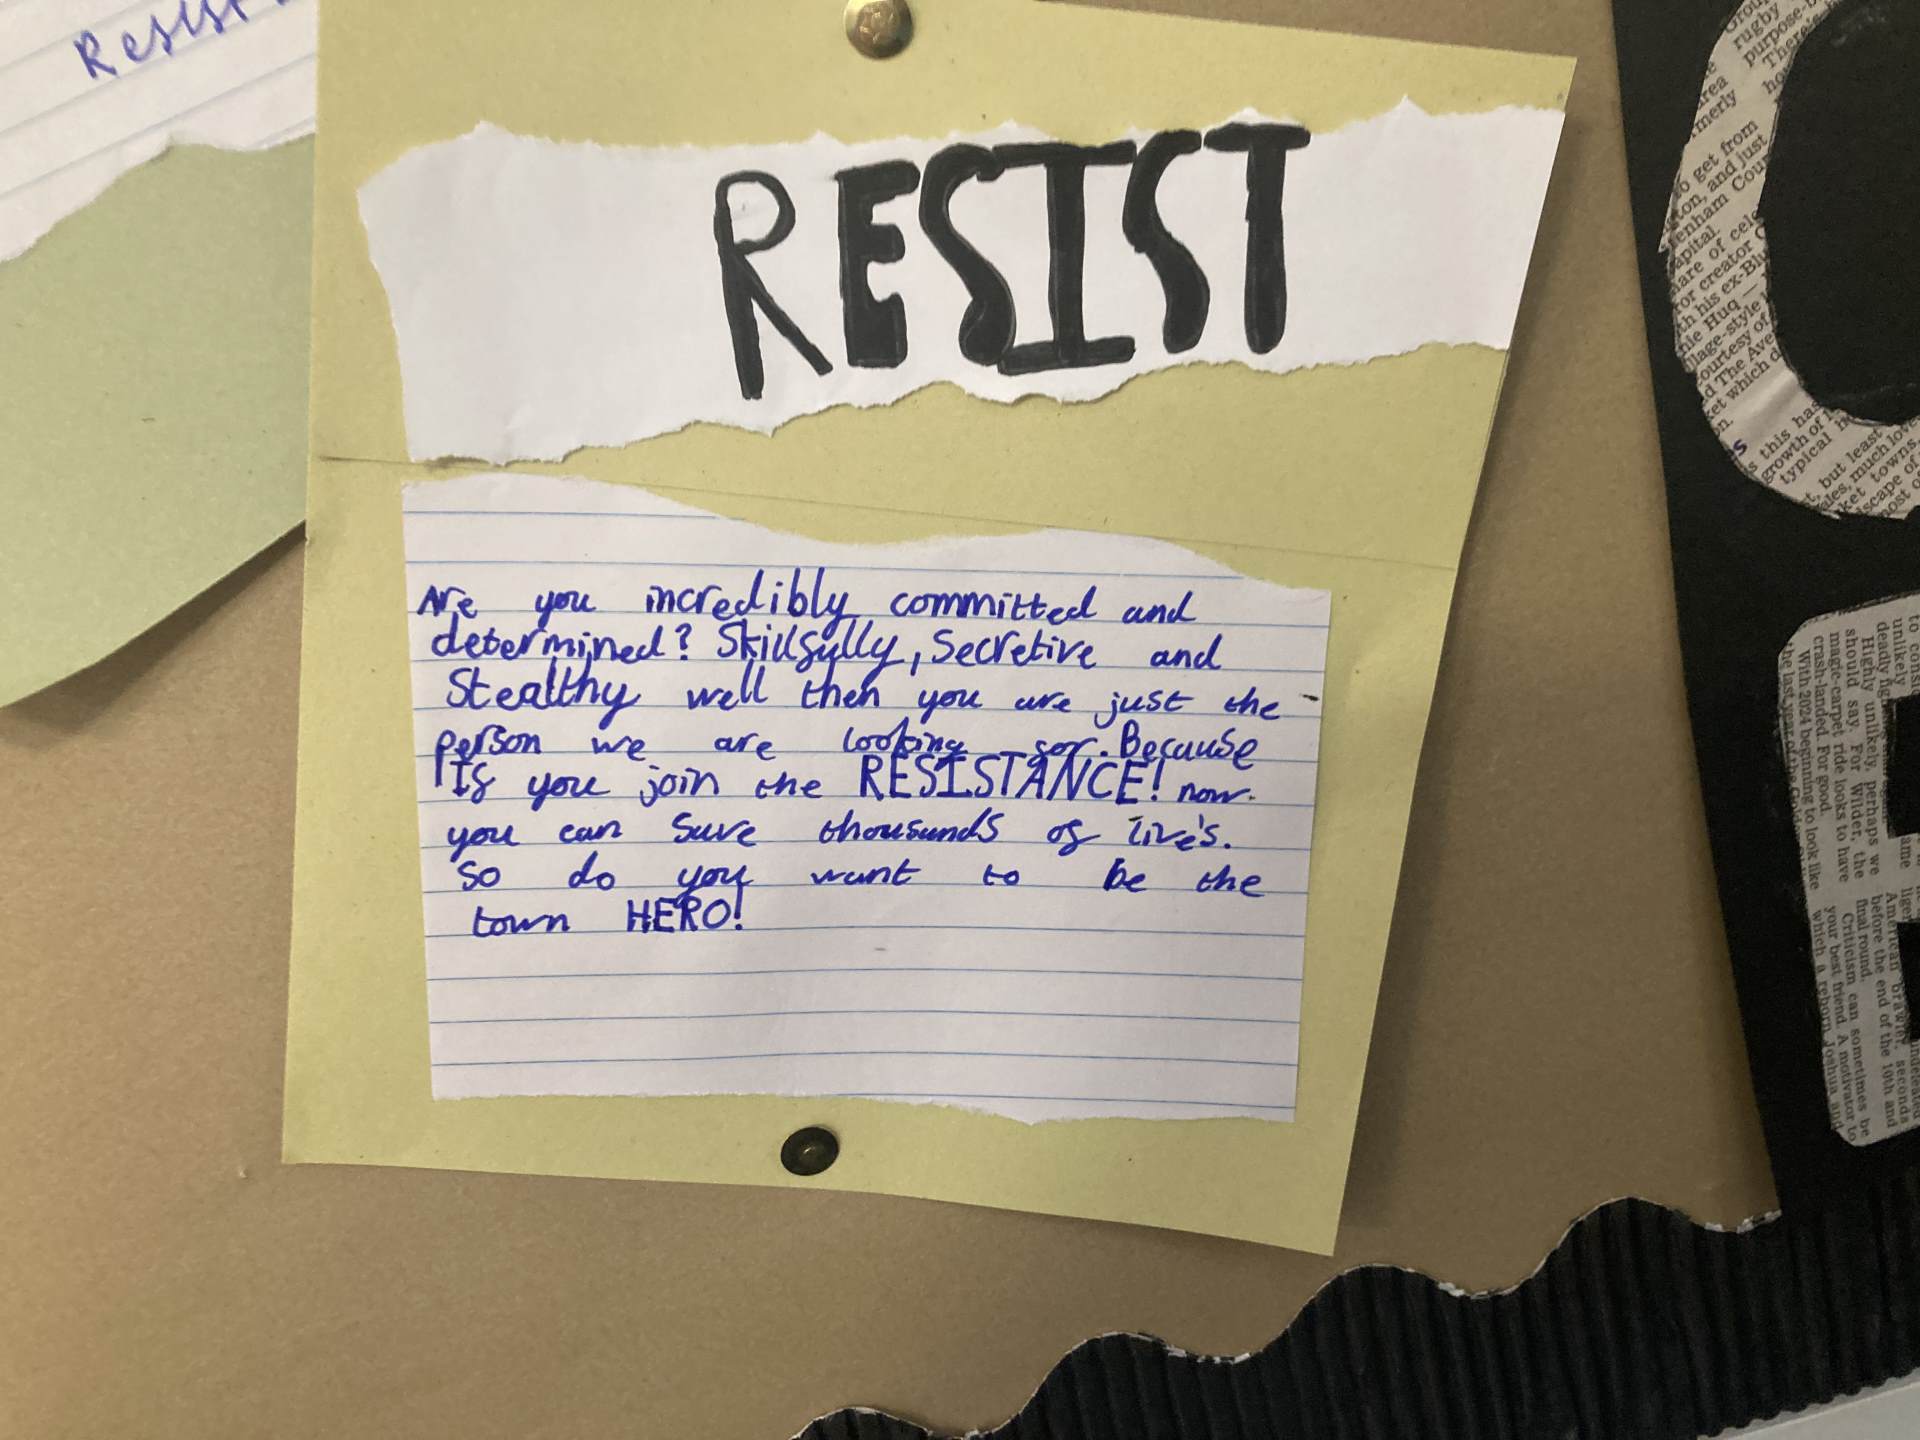 Resist
RESIST
Are you incredibly committed and
determined? Skillfully, Secretive and
Stealthy well then you are just the
person we are looking for. Because
If you join the RESISTANCE! now.
you can save thousands of live's.
So do you want to be the
town HERO!
rugby
purpose-b
There's
ho
area
merly
to get from
ton, and just
enham Cou
apital.
are of cele
or creator
th his ex-Blu
ie Huq —
llage-style
ourtesy of
d The Ave
ket which d
n.
s this has
growth of
typical
t, but least
ales, much love
ket towns.
scape of
ost of
to consi
unlikely
deadly
Highly unlikely, perhaps we
should say. For Wilder, the
magic-carpet ride looks to have
crash-landed. For good.
With 2024 beginning to look like
the last year of the
ame
American brawler, seconds
before the end of the 10th and
final round.
Criticism can sometimes be
your best friend. A motivator to
which a reborn Joshua and